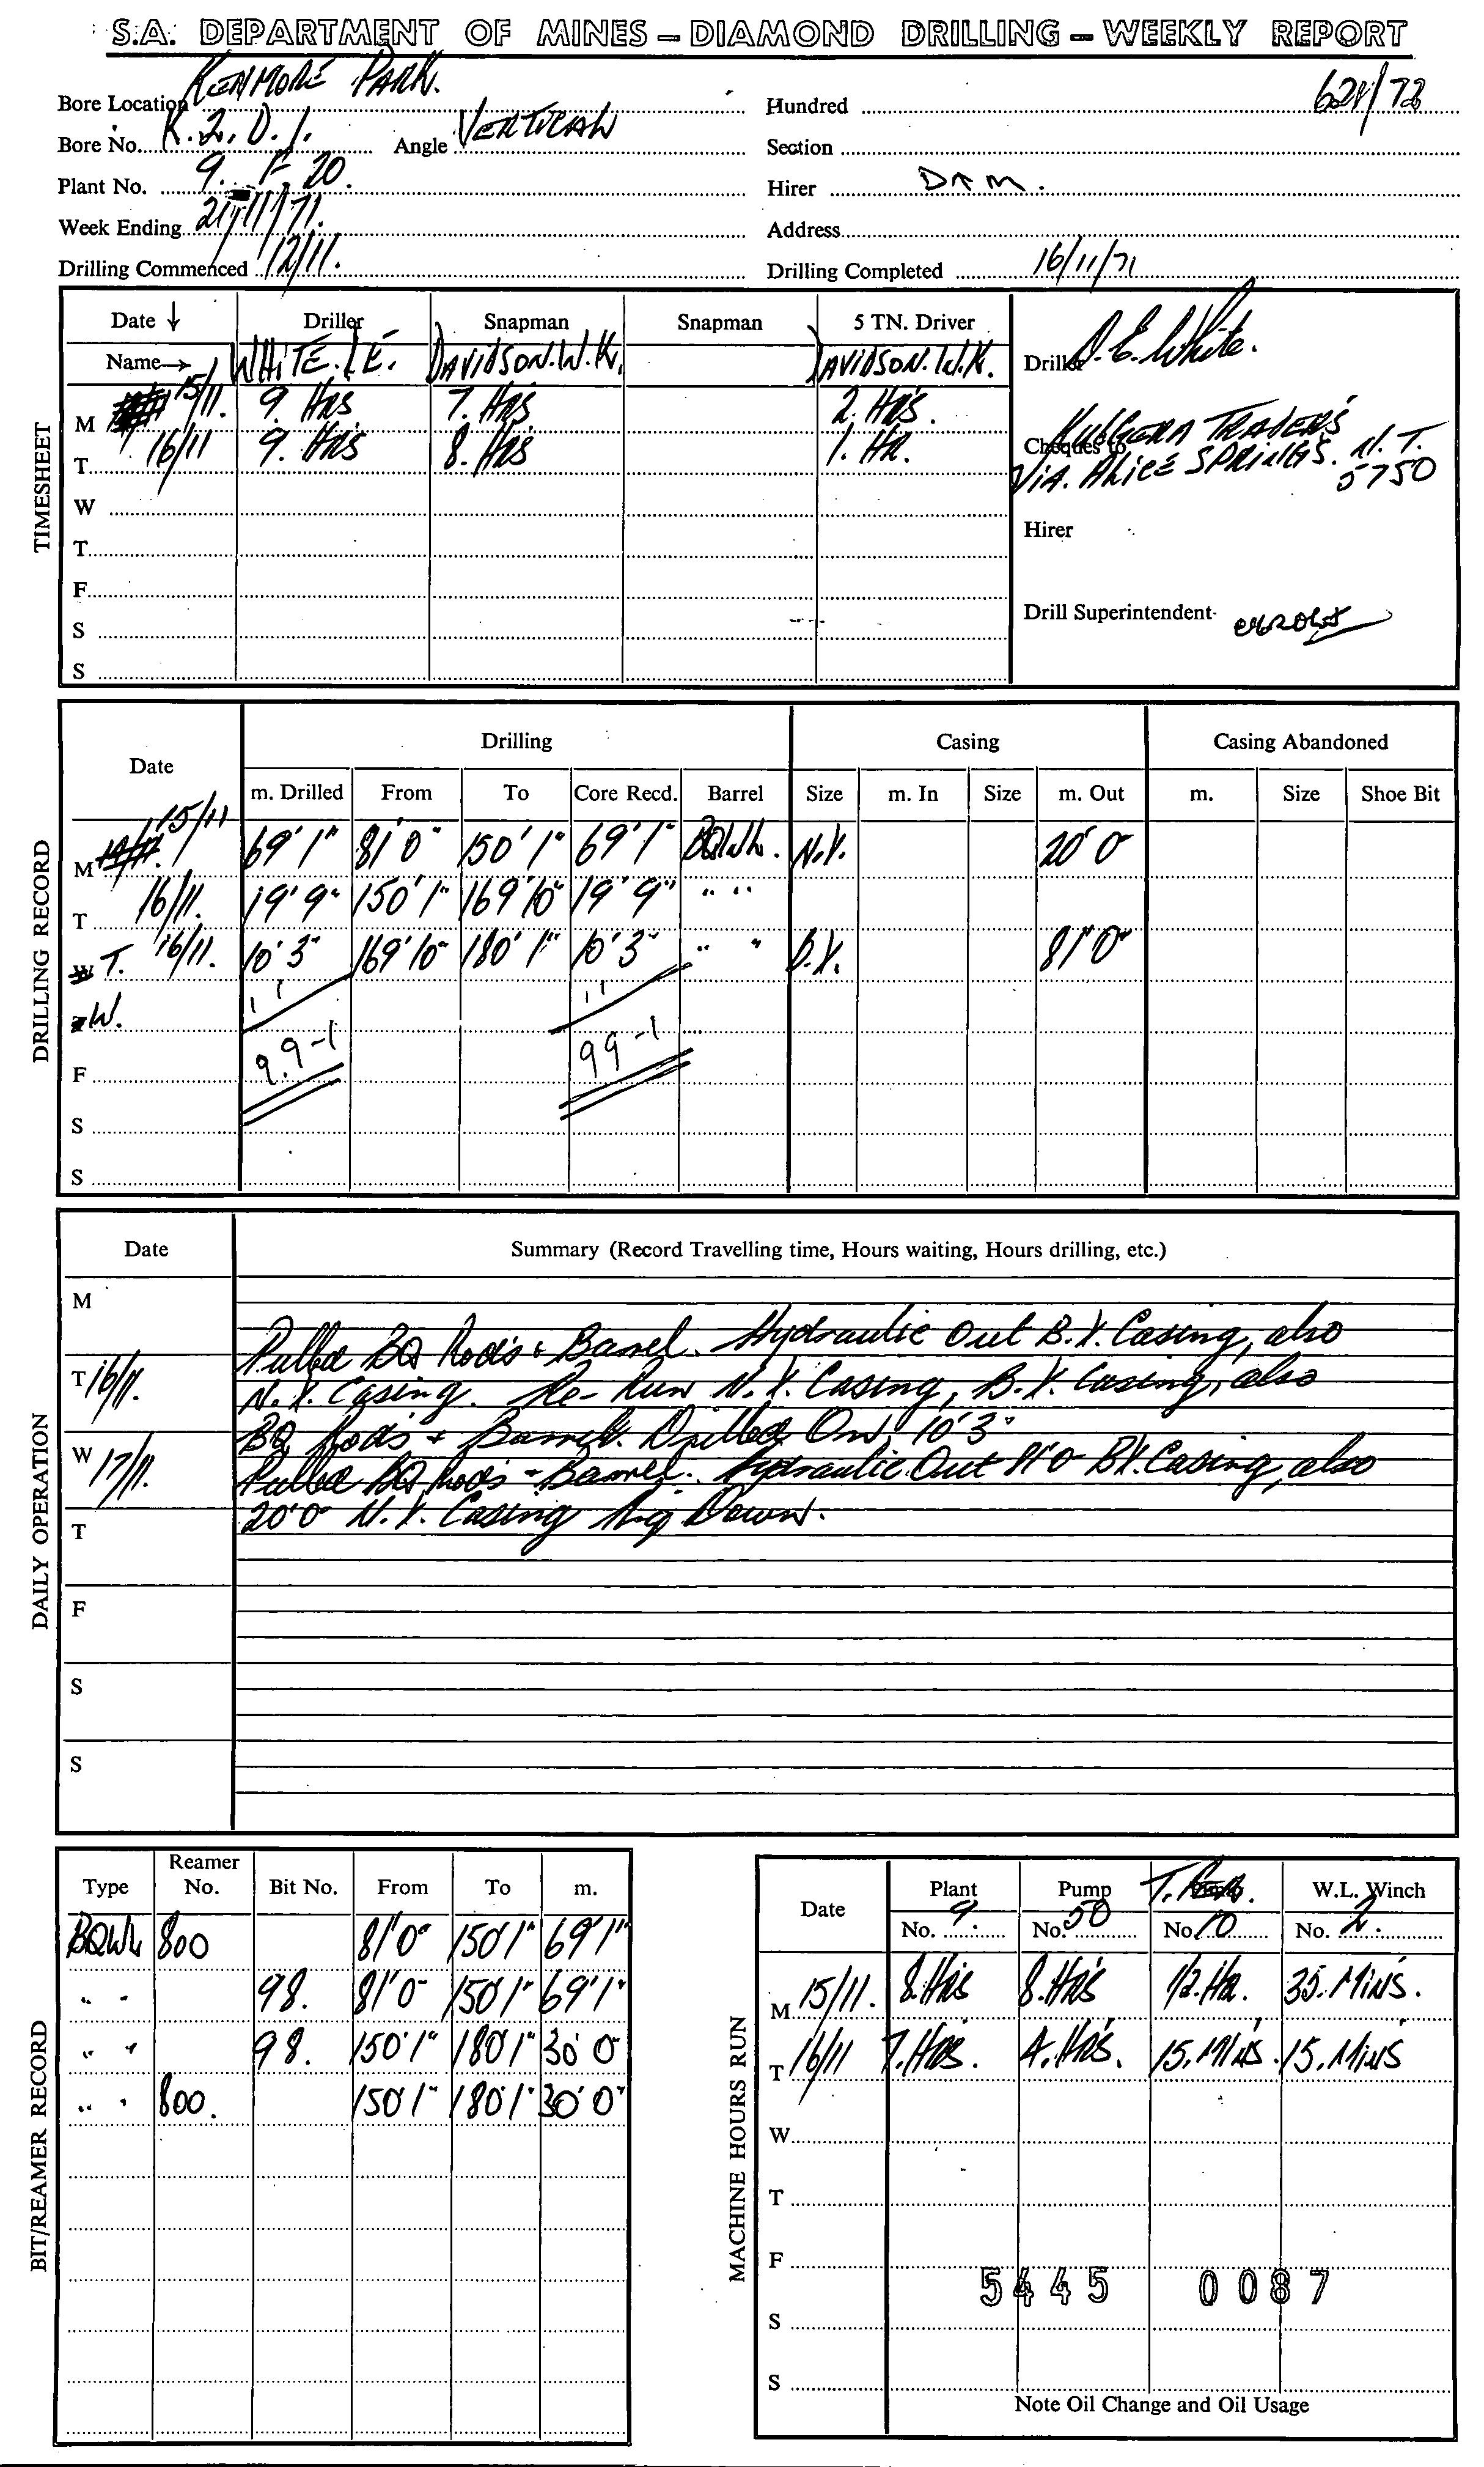 S.A. DEPARTMENT OF MINES – DIAMOND DRILLING – WEEKLY REPORT
Bore Location KENMORE PARK. Hundred
Bore No. K.2.D.1. Angle VERTICAL Section
Plant No. 9. F. 20. Hirer D M.
Week Ending 21/11/71. Address
Drilling Commenced 12/11. Drilling Completed 16/11/71
TIMESHEET
Date ↓ Driller Snapman Snapman 5 TN. Driver
Name→ WHITE. DAVIDSON.W.K. DAVIDSON.W.K. Driller White.
M 15/11. 9. HRS 7. HRS 2. HRS.
T 16/11 9. HRS 8. HRS 1. HR. Cheques to KULGERA TRADERS
VIA. ALICE SPRINGS. N.T.
5750
W
T Hirer
F
S Drill Superintendent
S
DRILLING RECORD
Date Drilling Casing Casing Abandoned
m. Drilled From To Core Recd. Barrel Size m. In Size m. Out m. Size Shoe Bit
M 15/11 69' 1" 81' 0" 150' 1" 69' 1" BQWL. N.X. 20' 0
T 16/11. 19' 9" 150' 1" 169' 10" 19' 9" " " 
T. 16/11. 10' 3" 169' 10" 180' 1" 10' 3" " " B.X. 81' 0"
W.
F 99-1 99-1
S
S
DAILY OPERATION
Date Summary (Record Travelling time, Hours waiting, Hours drilling, etc.)
M
Pulled BQ Rods & Barrel. Hydraulic Out B.X. Casing, also
T 16/11. N.X. Casing. Re-Run N.X. Casing, B.X. Casing, also
BQ Rods + Barrel. Drilled On, 10' 3"
W 17/11. Pulled BQ Rods + Barrel. Hydraulic Out 81'0 BX. Casing, also
20' 0 N.X. Casing Rig Down.
T
F
S
S
BIT/REAMER RECORD
Type Reamer No. Bit No. From To m.
BQWL 800 81' 0" 150' 1" 69' 1"
" " 98. 81' 0" 150' 1" 69' 1"
" " 98. 150' 1" 180' 1" 30' 0"
" " 800. 150' 1" 180' 1" 30' 0"
MACHINE HOURS RUN
Date Plant Pump W.L. Winch
No. 9. No. 50 No. 10 No. 2.
M 15/11. 8. HRS 8. HRS 1/2. HR. 35. MINS.
T 16/11 7. HRS. 4. HRS. 15. MINS. 15. MINS
W
T
F
5445 0087
S
S
Note Oil Change and Oil Usage